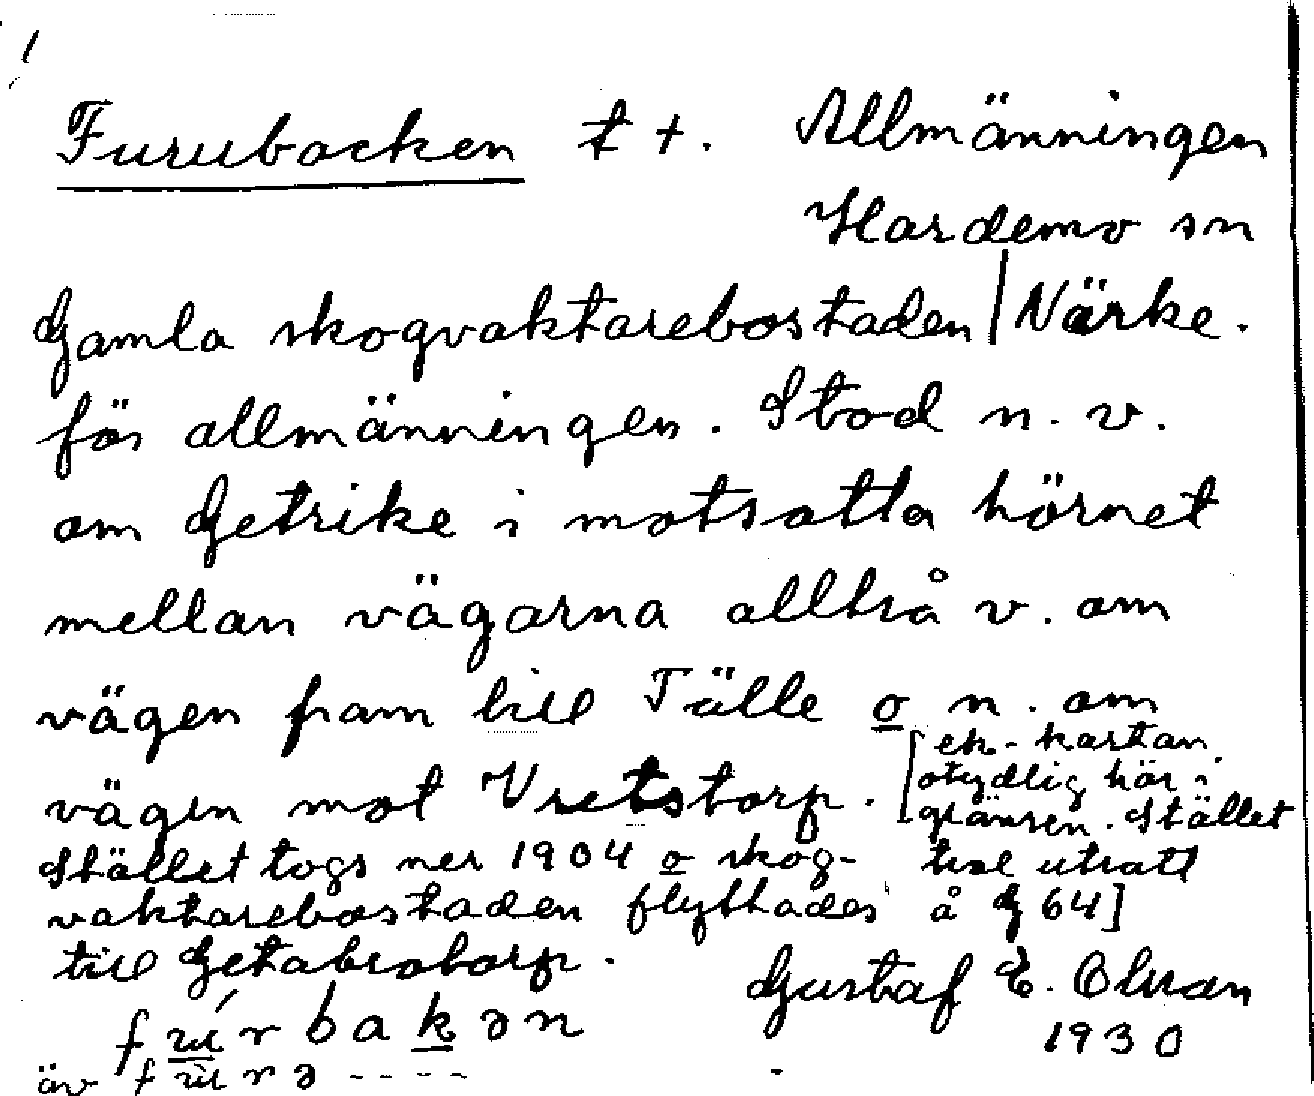 Furubacken t +. Allmänningen
Hardemo sn
Gamla skogvaktarebostaden | Närke.
för allmänningen. Stod n. v.
om Getrike i motsatta hörnet
mellan vägarna alltså v. om
vägen fram till Tälle o n. om
vägen mot Vretstorp.
[ek-kartan
otydlig här i
gränsen. Stället
trol utsatt
å G 64]
Stället togs ner 1904 o skog-
vaktarebostaden flyttades
till Getabrotorp.
Gustaf E. Olsson
1930
fúrbakən
äv fùrə ----